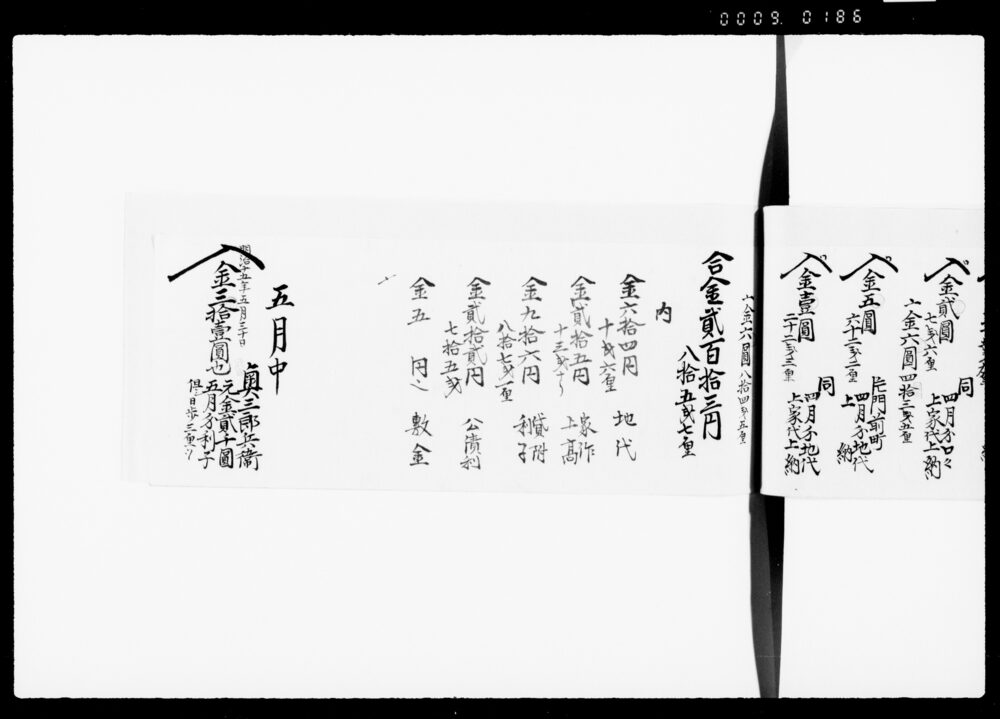 0009 0186
金貳圓
七戋六厘
同
四月分口々
上家代上納
〆金六圓四拾三戋五厘
入金五圓
六十二戋二厘
片門前町
四月分地代
上納
入金壹圓
二十二戋三厘
同
四月分地代
上家代上納
〆金六圓八拾四戋五厘
合金貳百拾三円
八拾五戋七厘
内
金六拾四円
十戋六厘
地代
金貳拾五円
家作
上高
金九拾六円
八拾七戋一厘
貸附
利子
金貳拾貳円
七拾五戋
公債利
金五円
敷金
五月中
明治十五年五月三十日
入金三拾壹圓也
奥三郎兵衞
元金貳千圓
五月分利子
但日歩三厘ツヽ